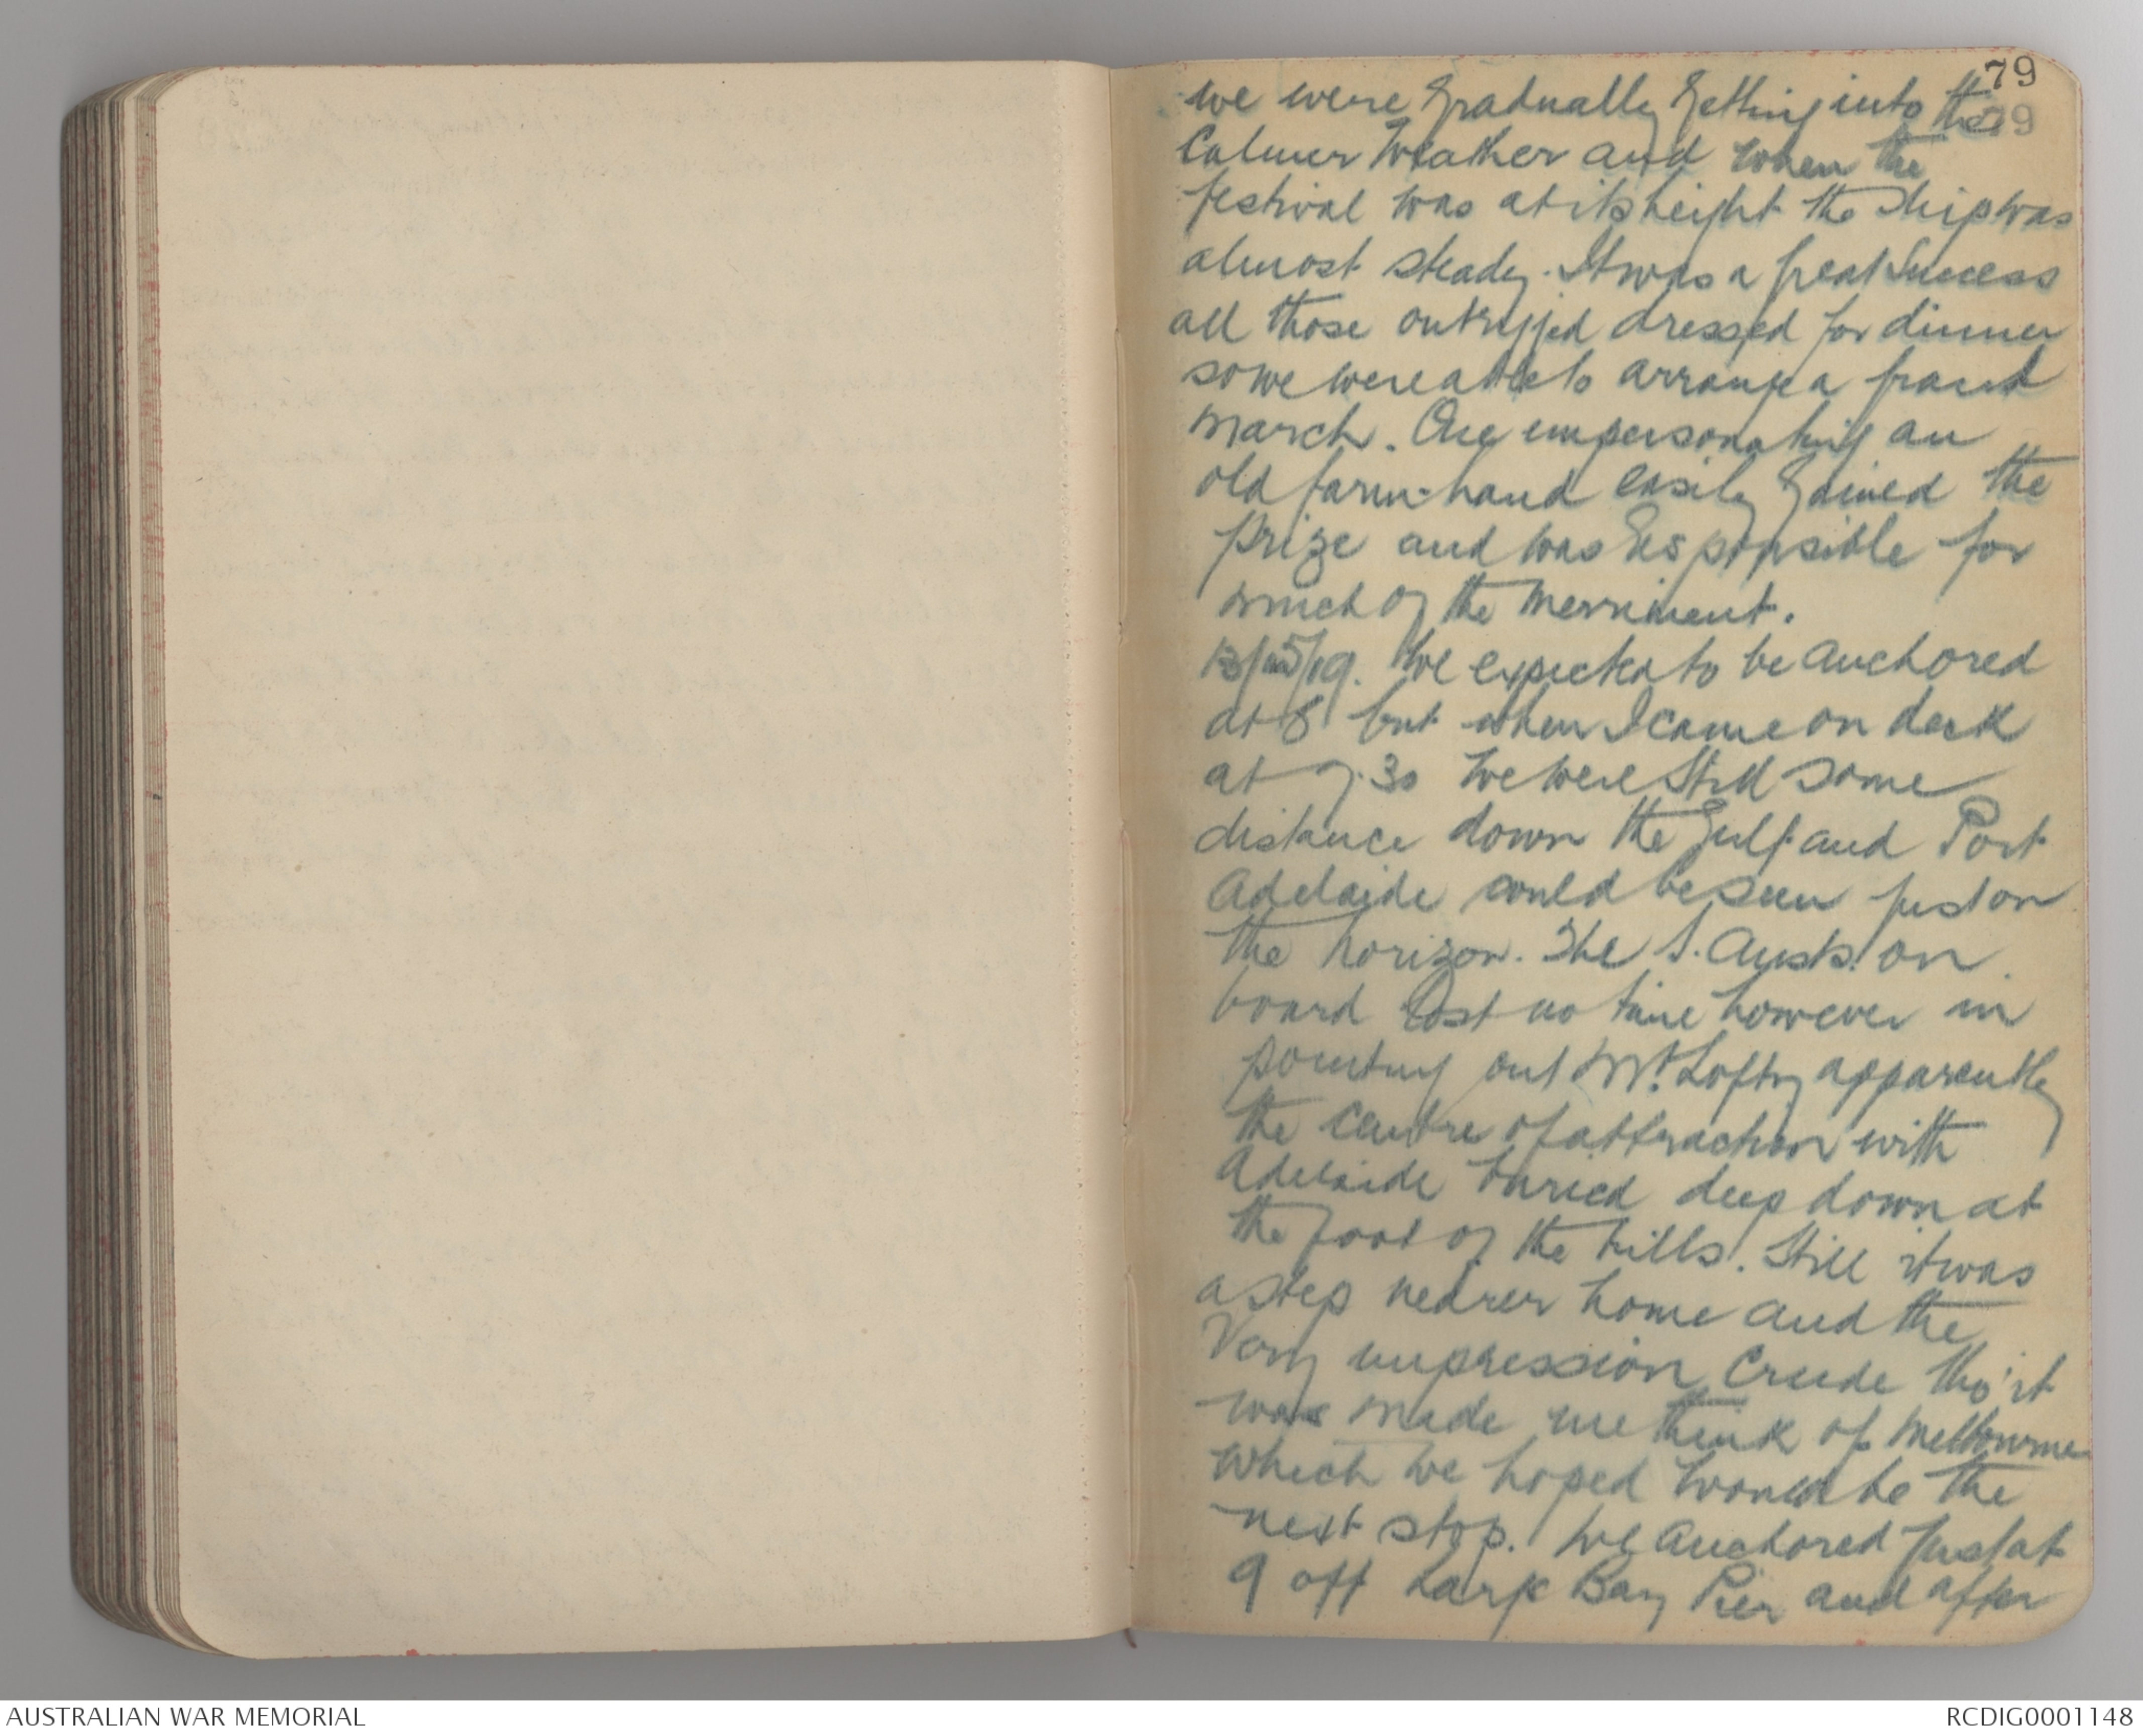 79
79
we were gradually getting into the
Calmer Weather and when the
festival was at its height the ship was
almost steady. It was a great success
all those outrigged dressed for dinner
so we were able to arrange a grand
march. One impersonating an
old farm-hand easily gained the
prize and was responsible for
much of the merriment.
13/5/19. We expected to be anchored
at 8 but when I came on deck
at 7.30 we were still some
distance down the Gulf and Port
Adelaide could be seen just on
the horizon. The S. Austs. on
board lost no time however in
pointing out Mt. Lofty apparently
the centre of attraction with
Adelaide buried deep down at
the foot of the hills. Still it was
a step nearer home and the
Very impression Crude tho' it
was made me think of Melbourne
which we hoped would be the
next stop. We anchored just at
9 off Largs Bay Pier and after
AUSTRALIAN WAR MEMORIAL
RCDIG0001148